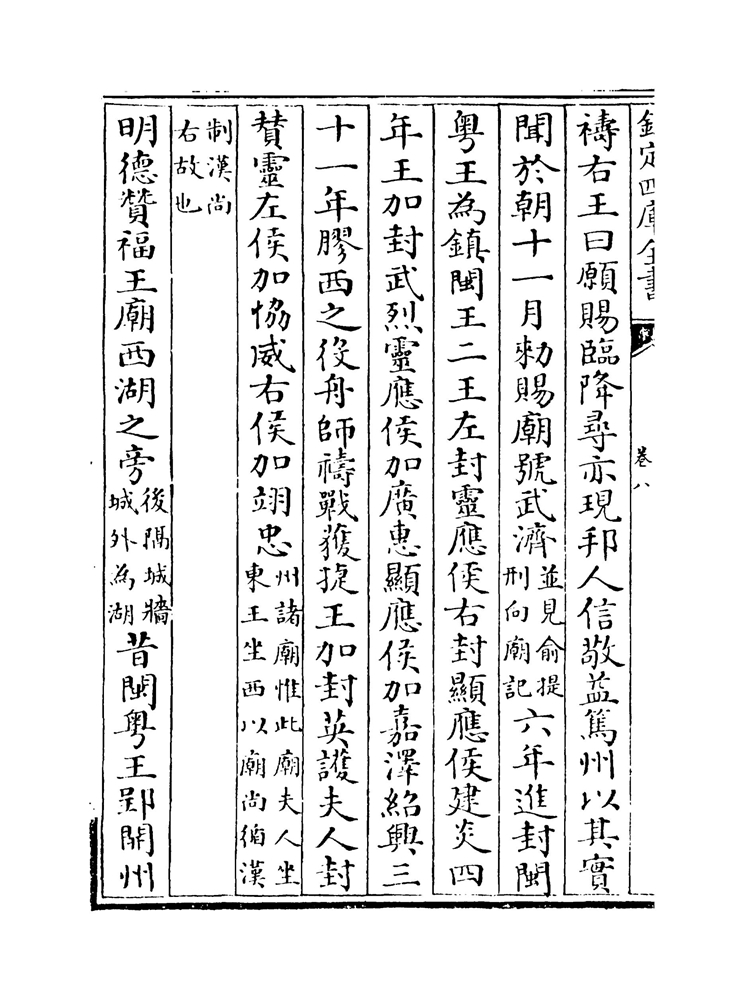 欽定四庫全書
卷八
禱右王曰願賜臨降尋亦現邦人信敬益篤州以其實
聞於朝十一月勑賜廟號武濟並見俞提刑向廟記六年進封閩
粤王為鎮閩王二王左封靈應侯右封顯應侯建炎四
年王加封武烈靈應侯加廣惠顯應侯加嘉澤紹興三
十一年膠西之役舟師禱戰獲捷王加封英護夫人封
賛靈左侯加協威右侯加翊忠州諸廟惟此廟夫人坐東王坐西以廟尚循漢
制漢尚右故也
明德贊福王廟西湖之旁後隔城牆城外為湖昔閩粤王郢開州